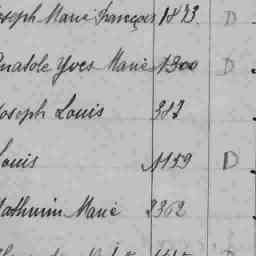 Joseph Marie François 1873 D
Anatole Yves Marie 1300 D
Joseph Louis 387
Louis 1159 D
Mathurin Marie 2362